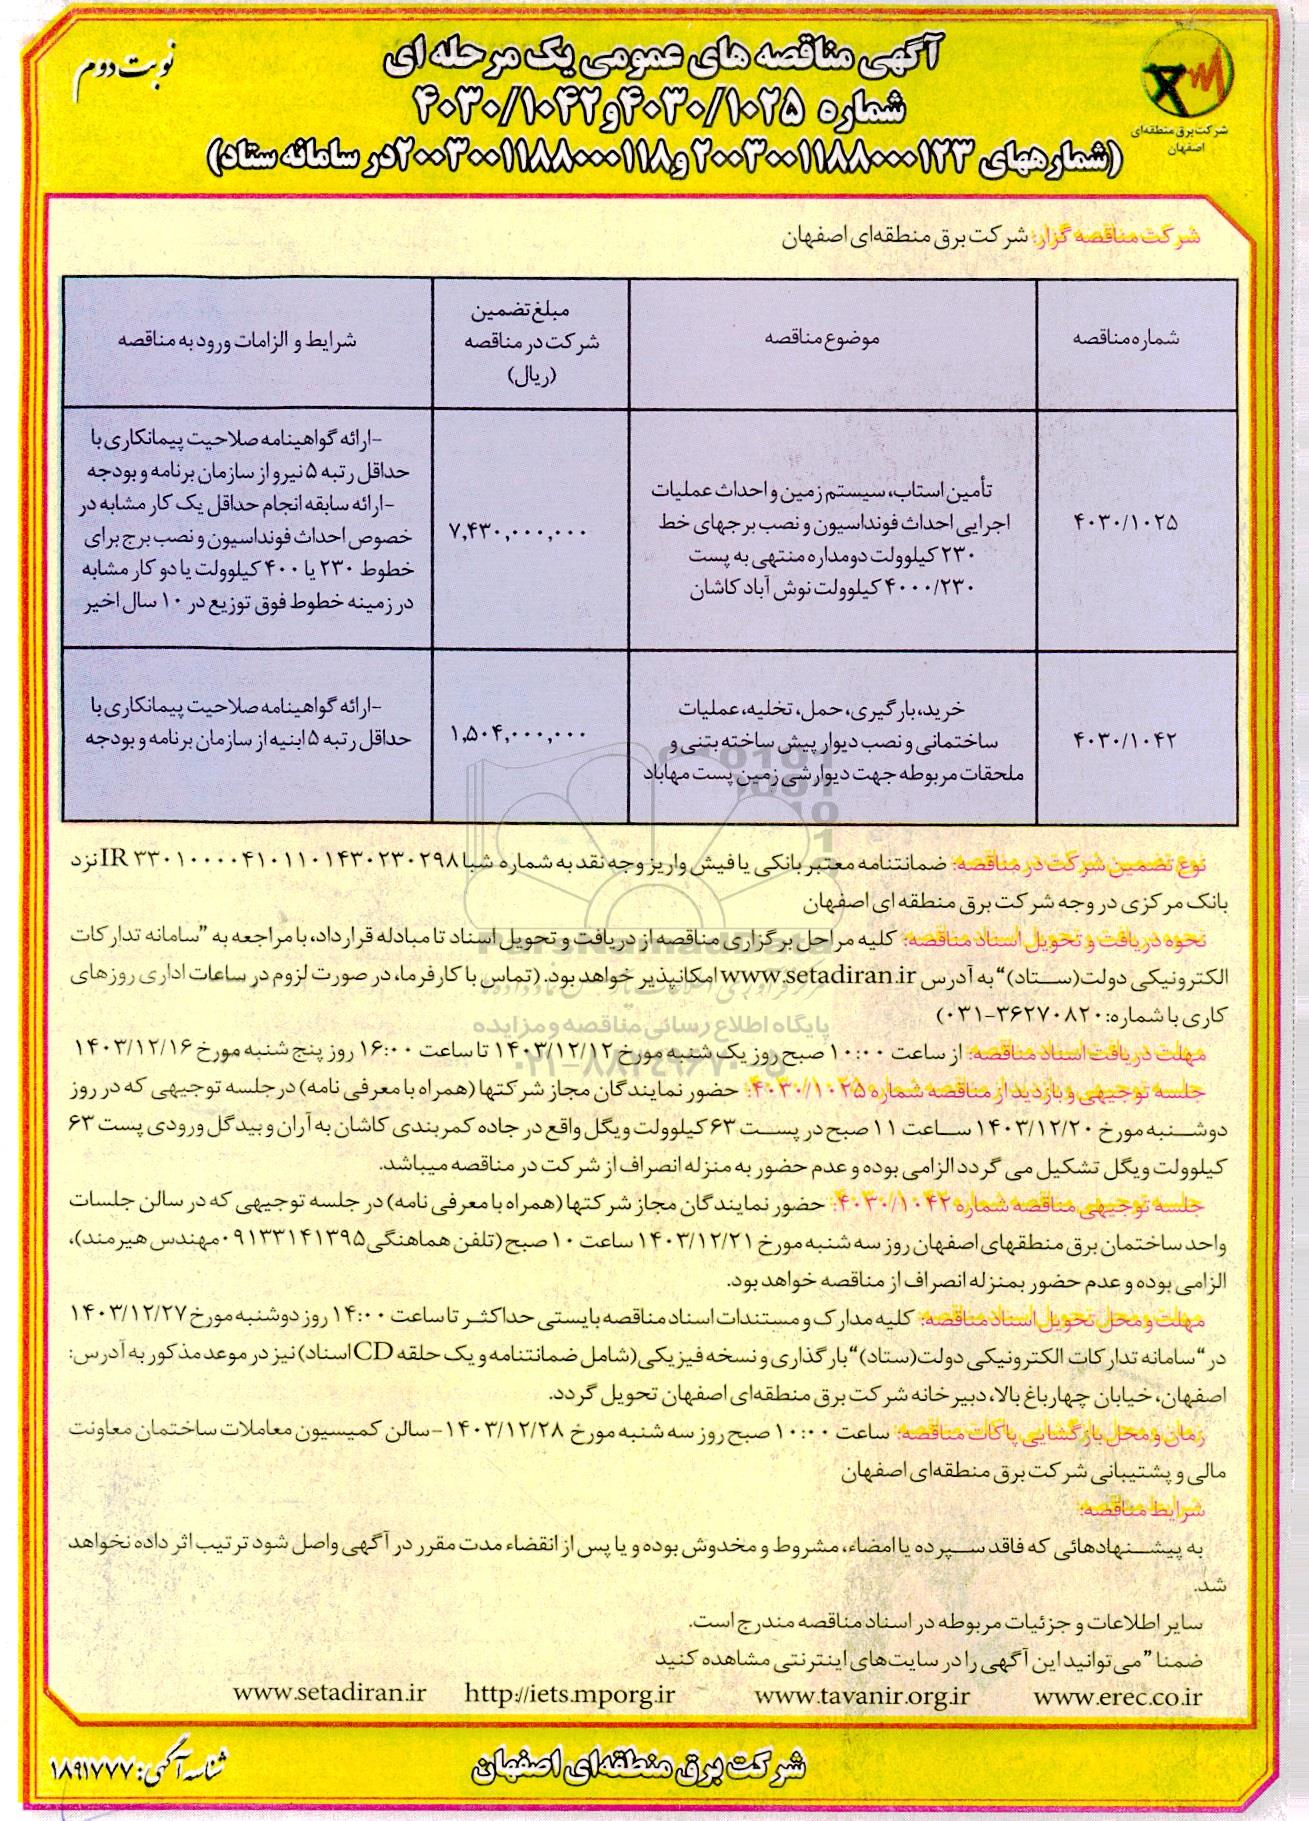 نوبت دوم
آگهی مناقصه های عمومی یک مرحله ای
شماره ۴۰۳۰/۱۰۲۵و۴۰۳۰/۱۰۴۲
(شمارههای ۲۰۰۳۰۰۱۱۸۸۰۰۰۱۲۳ و۲۰۰۳۰۰۱۱۸۸۰۰۰۱۱۸در سامانه ستاد)
شرکت برق منطقه‌ای
اصفهان
شرکت مناقصه گزار: شرکت برق منطقه‌ای اصفهان
شماره مناقصه
موضوع مناقصه
مبلغ تضمین
شرکت در مناقصه
(ریال)
شرایط و الزامات ورود به مناقصه
۴۰۳۰/۱۰۲۵
تأمین استاب، سیستم زمین و احداث عملیات
اجرایی احداث فونداسیون و نصب برجهای خط
۲۳۰ کیلوولت دومداره منتهی به پست
۴۰۰۰/۲۳۰ کیلوولت نوش آباد کاشان
۷,۴۳۰,۰۰۰,۰۰۰
-ارائه گواهینامه صلاحیت پیمانکاری با
حداقل رتبه ۵ نیرو از سازمان برنامه و بودجه
-ارائه سابقه انجام حداقل یک کار مشابه در
خصوص احداث فونداسیون و نصب برج برای
خطوط ۲۳۰ یا ۴۰۰ کیلوولت یا دو کار مشابه
در زمینه خطوط فوق توزیع در ۱۰ سال اخیر
۴۰۳۰/۱۰۴۲
خرید، بارگیری، حمل، تخلیه، عملیات
ساختمانی و نصب دیوار پیش ساخته بتنی و
ملحقات مربوطه جهت دیوارشی زمین پست مهاباد
۱,۵۰۴,۰۰۰,۰۰۰
-ارائه گواهینامه صلاحیت پیمانکاری با
حداقل رتبه ۵ ابنیه از سازمان برنامه و بودجه
نوع تضمین شرکت در مناقصه: ضمانتنامه معتبر بانکی یا فیش واریز وجه نقد به شماره شبا IR ۳۳۰۱۰۰۰۰۴۱۰۱۱۰۱۴۳۰۲۳۰۲۹۸ نزد
بانک مرکزی در وجه شرکت برق منطقه ای اصفهان
نحوه دریافت و تحویل اسناد مناقصه: کلیه مراحل برگزاری مناقصه از دریافت و تحویل اسناد تا مبادله قرارداد، با مراجعه به "سامانه تدارکات
الکترونیکی دولت(ستاد)" به آدرس www.setadiran.ir امکانپذیر خواهد بود. (تماس با کارفرما، در صورت لزوم در ساعات اداری روزهای
کاری با شماره: ۳۶۲۷۰۸۲۰-۰۳۱)
مهلت دریافت اسناد مناقصه: از ساعت ۱۰:۰۰ صبح روز یک شنبه مورخ ۱۴۰۳/۱۲/۱۲ تا ساعت ۱۶:۰۰ روز پنج شنبه مورخ ۱۴۰۳/۱۲/۱۶
جلسه توجیهی و بازدید از مناقصه شماره ۴۰۳۰/۱۰۲۵: حضور نمایندگان مجاز شرکتها (همراه با معرفی نامه) در جلسه توجیهی که در روز
دوشنبه مورخ ۱۴۰۳/۱۲/۲۰ ساعت ۱۱ صبح در پست ۶۳ کیلوولت ویگل واقع در جاده کمربندی کاشان به آران و بیدگل ورودی پست ۶۳
کیلوولت ویگل تشکیل می گردد الزامی بوده و عدم حضور به منزله انصراف از شرکت در مناقصه میباشد.
جلسه توجیهی مناقصه شماره ۴۰۳۰/۱۰۴۲: حضور نمایندگان مجاز شرکتها (همراه با معرفی نامه) در جلسه توجیهی که در سالن جلسات
واحد ساختمان برق منطقهای اصفهان روز سه شنبه مورخ ۱۴۰۳/۱۲/۲۱ ساعت ۱۰ صبح (تلفن هماهنگی۰۹۱۳۳۱۴۱۳۹۵مهندس هیرمند)،
الزامی بوده و عدم حضور بمنزله انصراف از مناقصه خواهد بود.
مهلت و محل تحویل اسناد مناقصه: کلیه مدارک و مستندات اسناد مناقصه بایستی حداکثر تا ساعت ۱۴:۰۰ روز دوشنبه مورخ ۱۴۰۳/۱۲/۲۷
در "سامانه تدارکات الکترونیکی دولت(ستاد)" بارگذاری و نسخه فیزیکی(شامل ضمانتنامه و یک حلقه CD اسناد) نیز در موعد مذکور به آدرس:
اصفهان، خیابان چهارباغ بالا، دبیرخانه شرکت برق منطقه‌ای اصفهان تحویل گردد.
زمان و محل بازگشایی پاکات مناقصه: ساعت ۱۰:۰۰ صبح روز سه شنبه مورخ ۱۴۰۳/۱۲/۲۸-سالن کمیسیون معاملات ساختمان معاونت
مالی و پشتیبانی شرکت برق منطقه‌ای اصفهان
شرایط مناقصه:
به پیشنهادهائی که فاقد سپرده یا امضاء، مشروط و مخدوش بوده و یا پس از انقضاء مدت مقرر در آگهی واصل شود ترتیب اثر داده نخواهد
شد.
سایر اطلاعات و جزئیات مربوطه در اسناد مناقصه مندرج است.
ضمنا "می‌توانید این آگهی را در سایت‌های اینترنتی مشاهده کنید
www.setadiran.ir http://iets.mporg.ir www.tavanir.org.ir www.erec.co.ir
شرکت برق منطقه‌ای اصفهان
شناسه آگهی: ۱۸۹۱۷۷۷
ParsNamadData
پایگاه اطلاع رسانی مناقصه و مزایده
۰۲۱-۸۸۳۴۹۶۷۰-۵